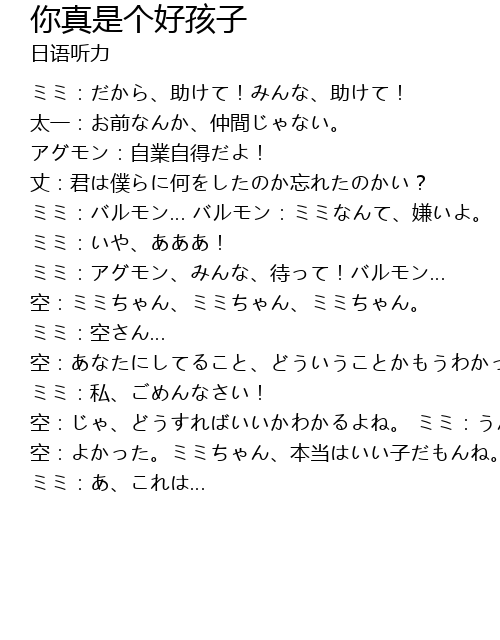 你真是个好孩子
日语听力
ミミ：だから、助けて！みんな、助けて！
太一：お前なんか、仲間じゃない。
アグモン：自業自得だよ！
丈：君は僕らに何をしたのか忘れたのかい？
ミミ：バルモン... バルモン：ミミなんて、嫌いよ。
ミミ：いや、あああ！
ミミ：アグモン、みんな、待って！バルモン...
空：ミミちゃん、ミミちゃん、ミミちゃん。
ミミ：空さん...
空：あなたにしてること、どういうことかもうわかっ
ミミ：私、ごめんなさい！
空：じゃ、どうすればいいかわかるよね。 ミミ：うん
空：よかった。ミミちゃん、本当はいい子だもんね。
ミミ：あ、これは...